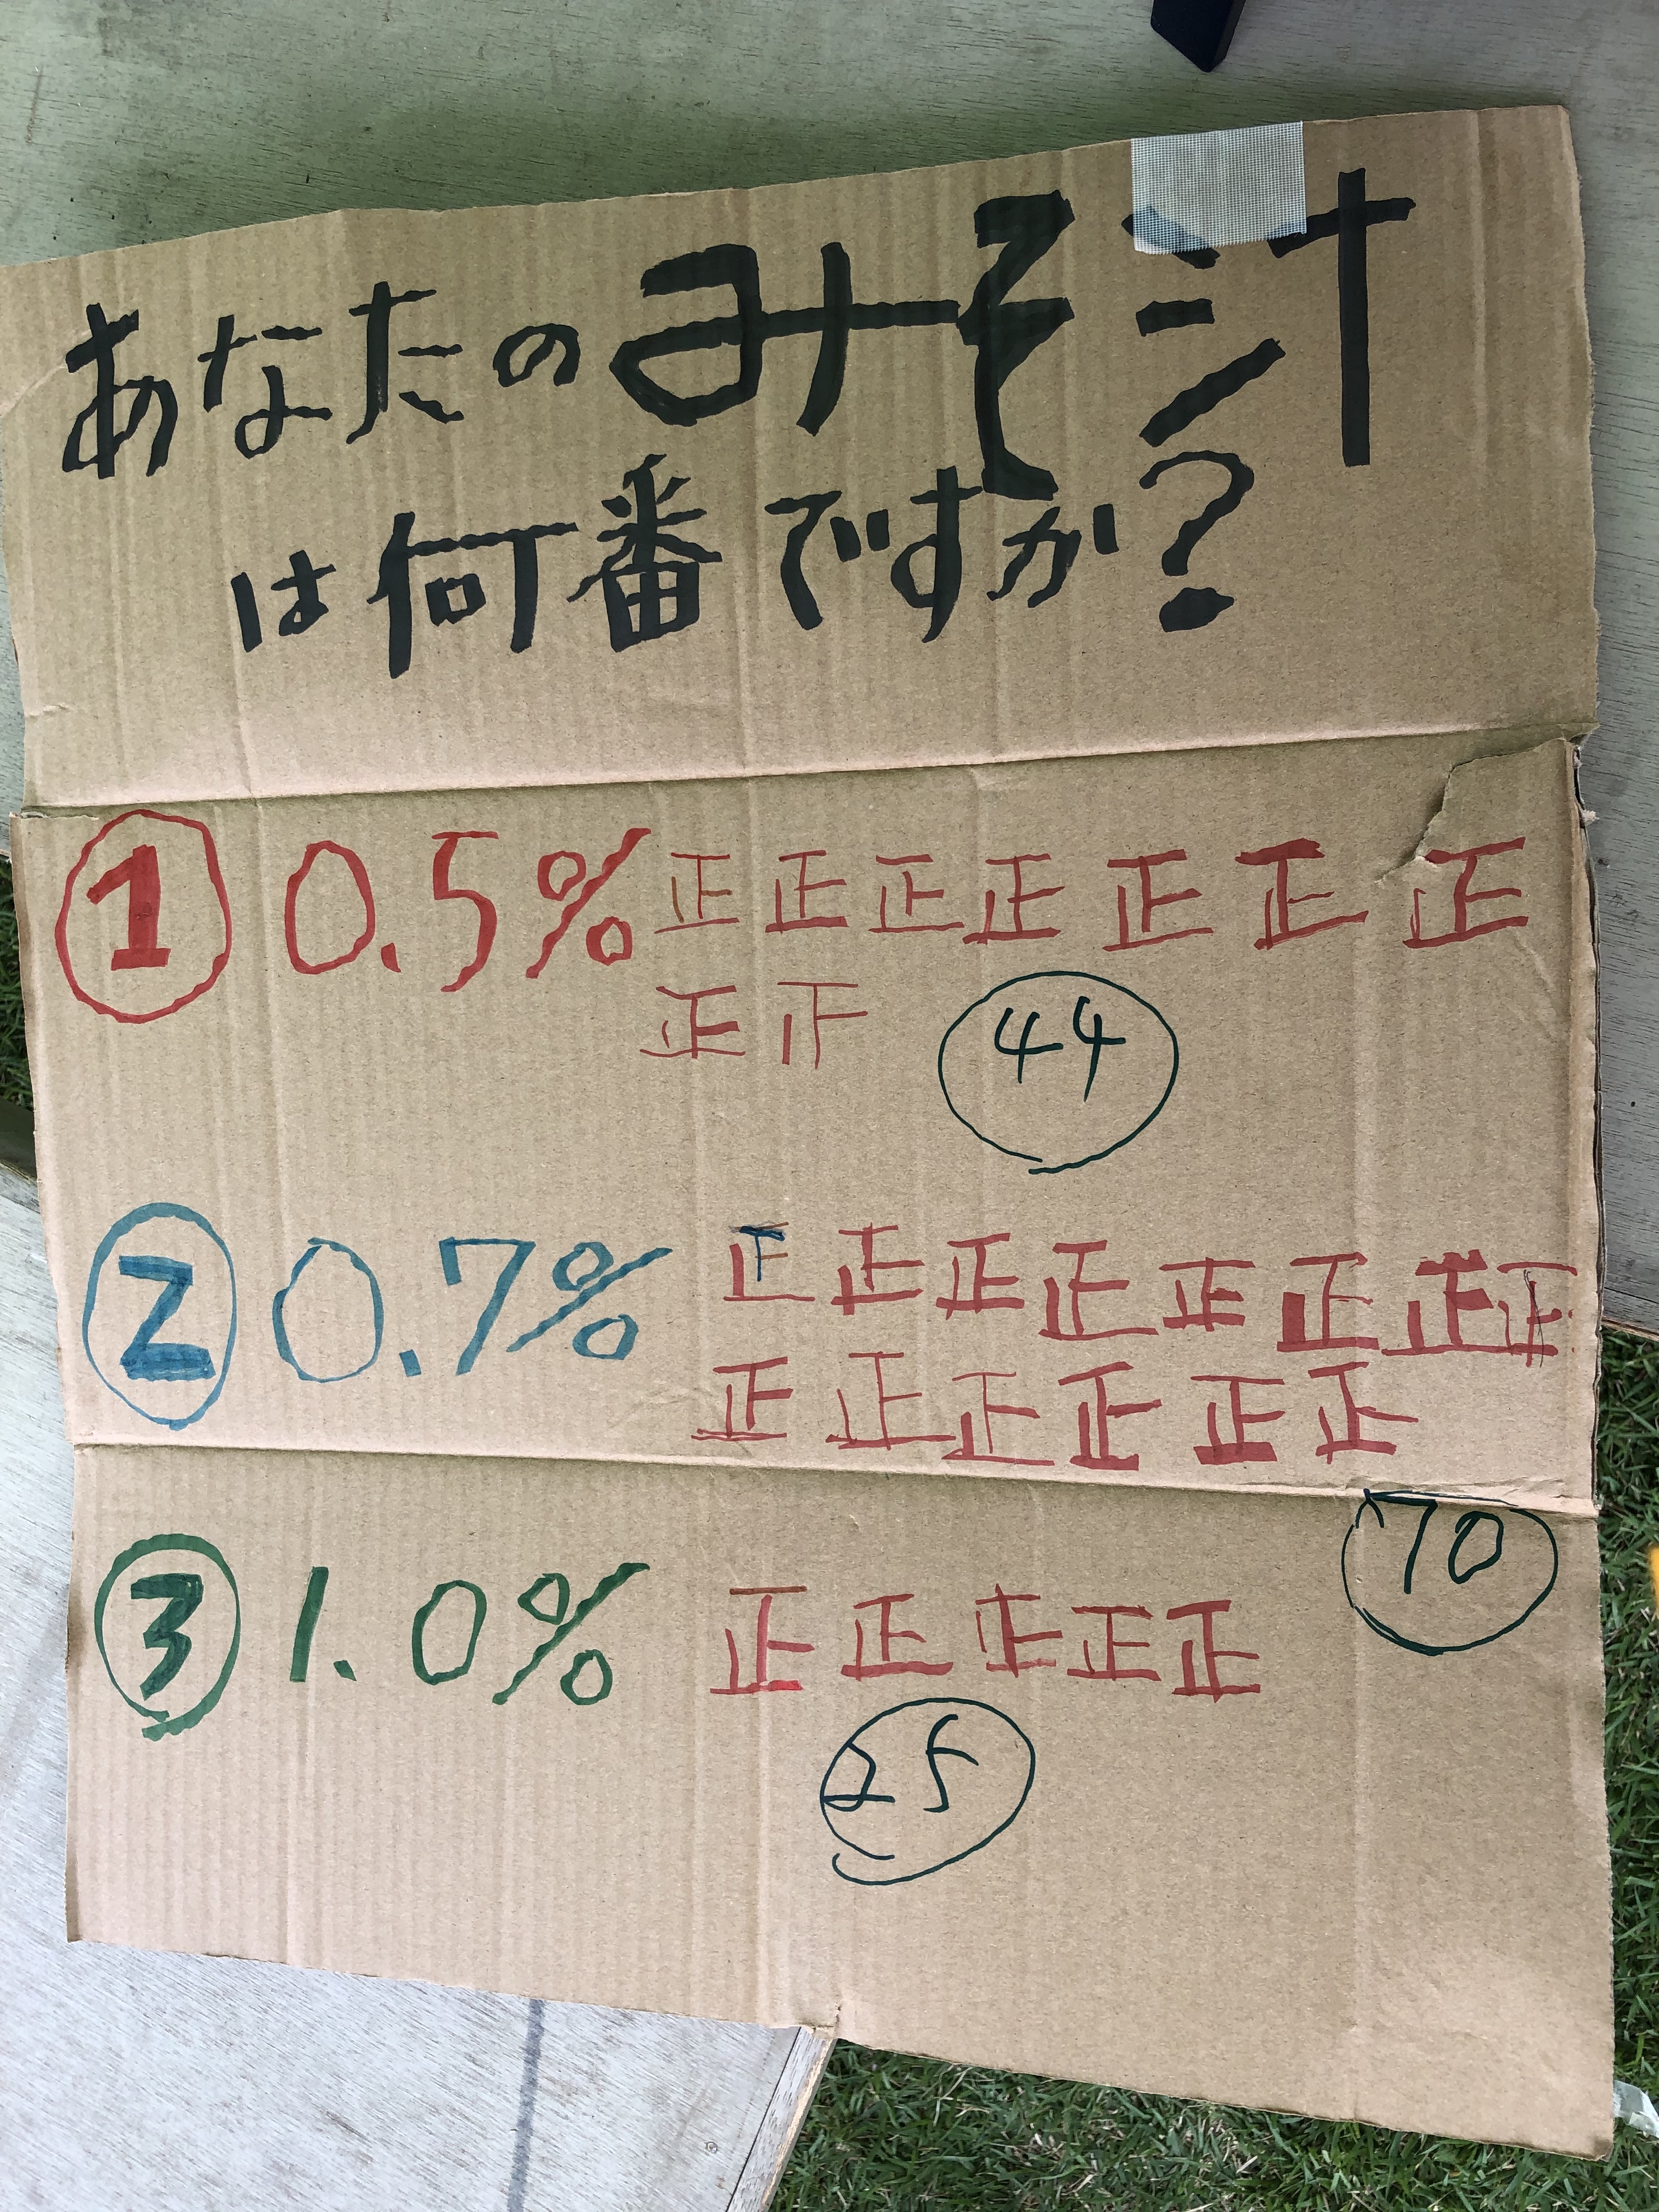 あなたのみそ汁
は何番ですか?
① 0.5% 正正正正正正正
正正
44
② 0.7% 正正正正正正正正
正正正正正正
70
③ 1.0% 正正正正正
25